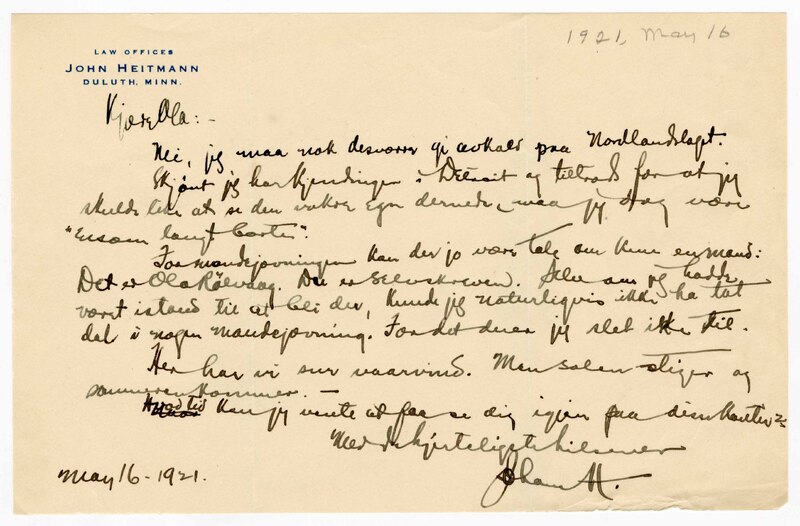 1921, May 16
LAW OFFICES
JOHN HEITMANN
DULUTH, MINN.
Kjære Ola: -
Nei, jeg maa nok desværre gi avkald paa Nordlandslaget.
Skjønt jeg har kjendinger i Detroit og tiltrods for at jeg
skulde like at se den vakre egn dernede, maa jeg dog være
"Ensom langt borte".
For mandejevningen kan der jo være tale om kun en mand:
Det er Ola Rölvaag. Du er selvskreven. Selv om jeg hadde
været istand til at bli der, kunde jeg naturligvis ikke ha tat
del i nogen mandejevning. For det duer jeg slet ikke til.
Her har vi sur vaarvind. Men solen stiger og
sommeren kommer. -
Hvad tid kan jeg vente at faa se dig igjen paa disse kanter?
Med de hjerteligste hilsener
Johan H.
May 16 - 1921.